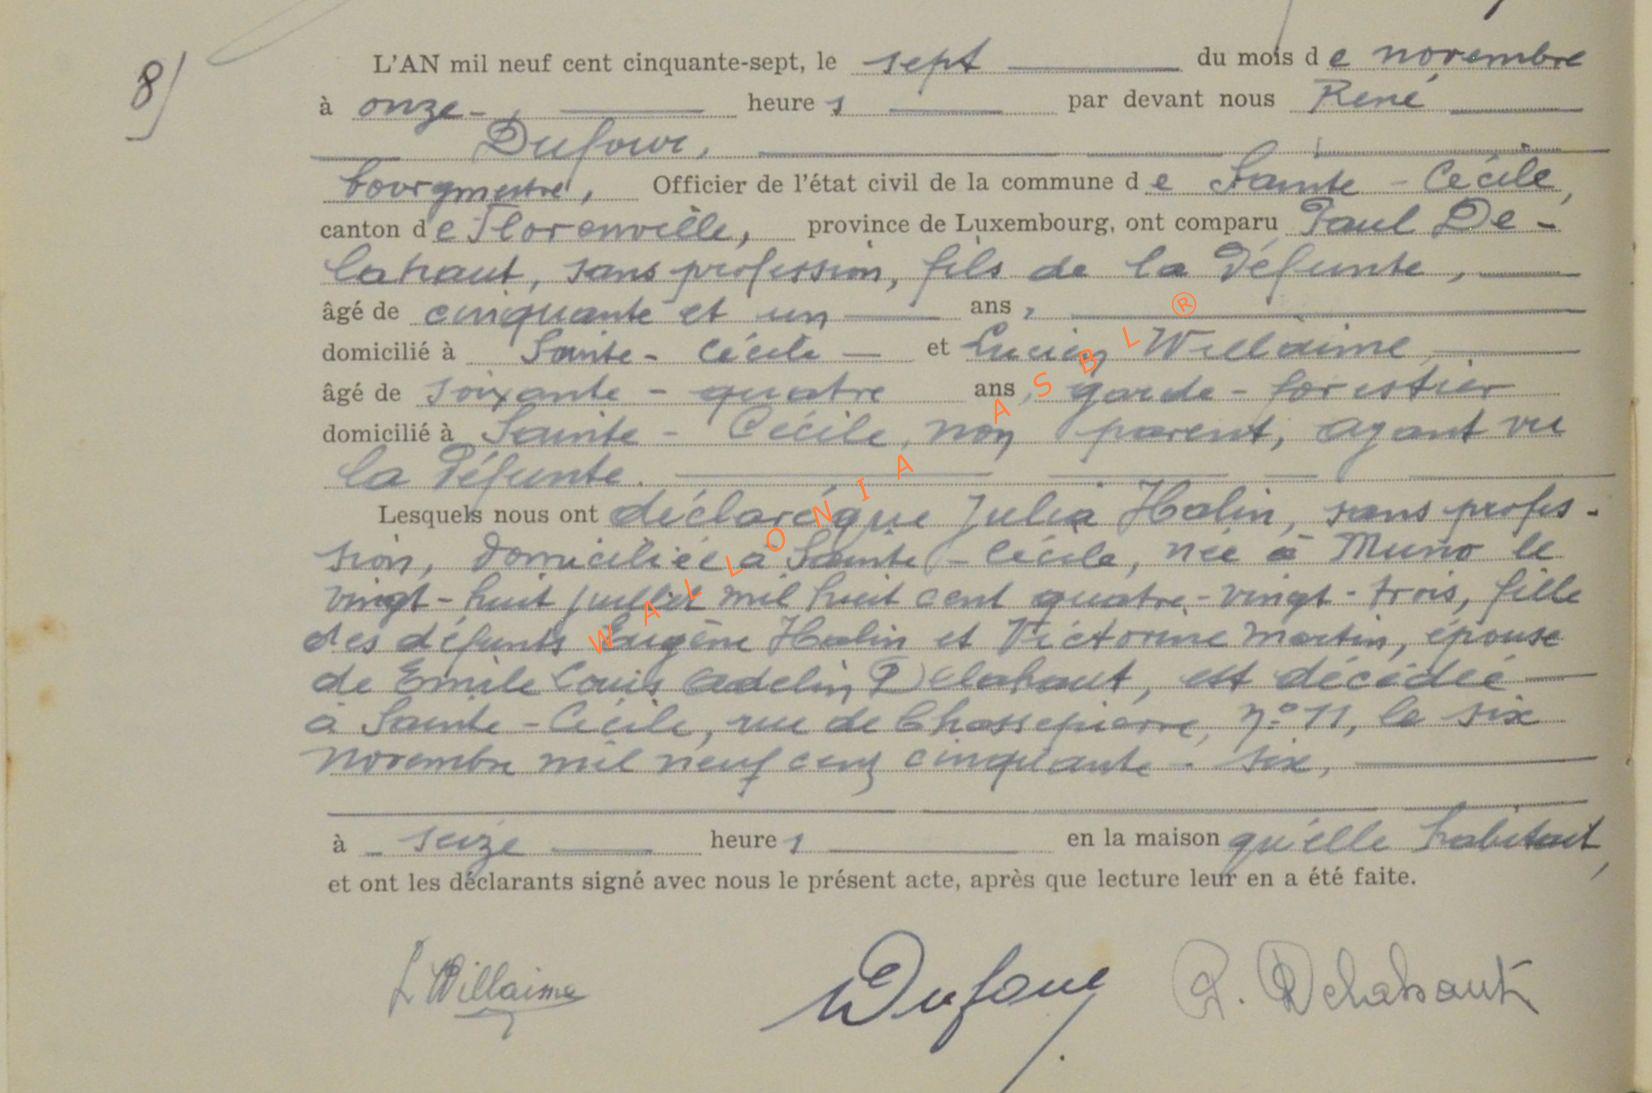 8)
L'AN mil neuf cent cinquante-sept, le sept du mois de novembre
à onze heures par devant nous René
Dufour,
bourgmestre, Officier de l'état civil de la commune de Sainte-Cécile,
canton de Florenville, province de Luxembourg, ont comparu Paul De-
lahaut, sans profession, fils de la défunte,
âgé de cinquante et un ans,
domicilié à Sainte-Cécile et Lucien Willaime
âgé de soixante-quatre ans, garde-forestier
domicilié à Sainte-Cécile, non parent, ayant vu
la défunte.
Lesquels nous ont déclaré que Julia Halin, sans profes-
sion, domiciliée à Sainte-Cécile, née à Muno le
vingt-huit juillet mil huit cent quatre-vingt-trois, fille
des défunts Eugène Halin et Victorine Martin, épouse
de Emile Louis Adelin Delahaut, est décédée
à Sainte-Cécile, rue de Chassepierre, n° 11, le six
novembre mil neuf cent cinquante-six,
à seize heures en la maison qu'elle habitait,
et ont les déclarants signé avec nous le présent acte, après que lecture leur en a été faite.
L Willaime Dufour P. Delahaut
WALLONIA ASBL ®